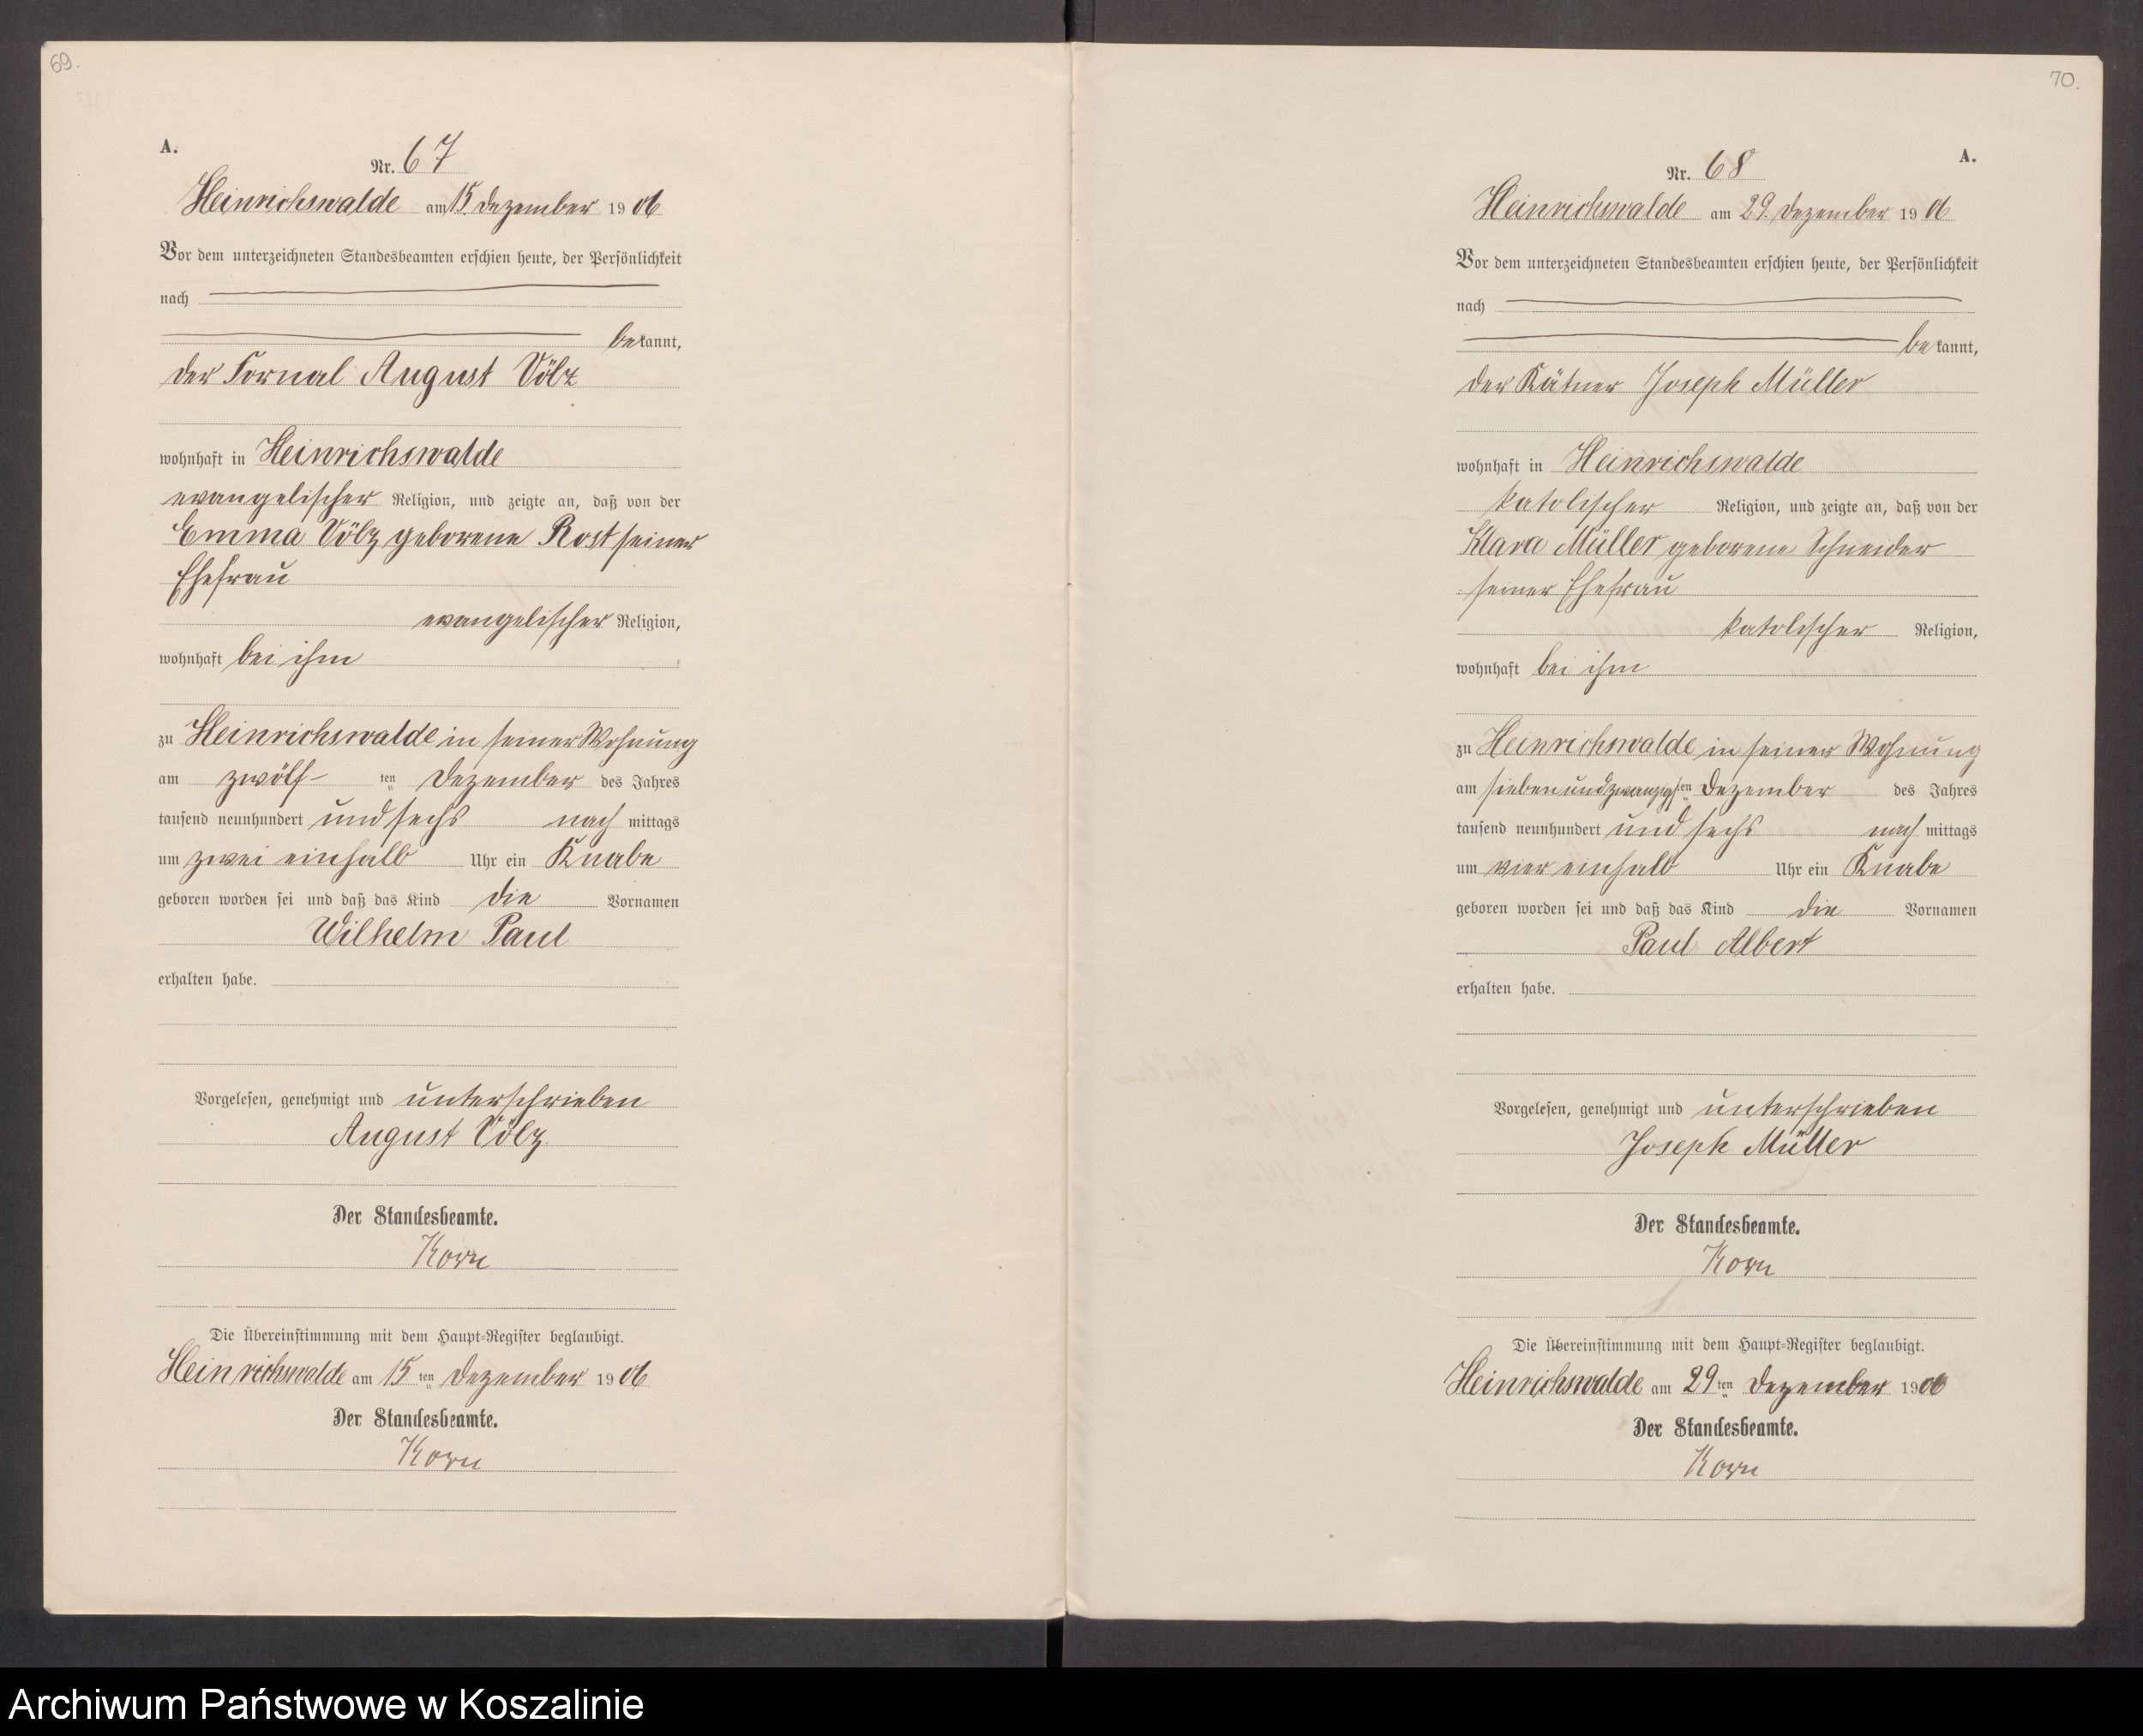 69.
A.
Nr. 67
Heinrichswalde am 15. Dezember 1906
Vor dem unterzeichneten Standesbeamten erschien heute, der Persönlichkeit
nach
bekannt,
der Fornal August Völz
wohnhaft in Heinrichswalde
evangelischer Religion, und zeigte an, daß von der
Emma Völz geborene Rost seiner
Ehefrau
evangelischer Religion,
wohnhaft bei ihm
zu Heinrichswalde in seiner Wohnung
am zwölf- ten Dezember des Jahres
tausend neunhundert und sechs nach mittags
um zwei einhalb Uhr ein Knabe
geboren worden sei und daß das Kind die Vornamen
Wilhelm Paul
erhalten habe.
Vorgelesen, genehmigt und unterschrieben
August Völz
Der Standesbeamte.
Korn
Die Übereinstimmung mit dem Haupt-Register beglaubigt.
Heinrichswalde am 15ten Dezember 1906
Der Standesbeamte.
Korn
70.
A.
Nr. 68
Heinrichswalde am 29. Dezember 1906
Vor dem unterzeichneten Standesbeamten erschien heute, der Persönlichkeit
nach
bekannt,
der Kätner Joseph Müller
wohnhaft in Heinrichswalde
katolischer Religion, und zeigte an, daß von der
Klara Müller geborene Schneider
seiner Ehefrau
katolischer Religion,
wohnhaft bei ihm
zu Heinrichswalde in seiner Wohnung
am sieben und zwanzigsten Dezember des Jahres
tausend neunhundert und sechs nach mittags
um vier einhalb Uhr ein Knabe
geboren worden sei und daß das Kind die Vornamen
Paul Albert
erhalten habe.
Vorgelesen, genehmigt und unterschrieben
Joseph Müller
Der Standesbeamte.
Korn
Die Übereinstimmung mit dem Haupt-Register beglaubigt.
Heinrichswalde am 29ten Dezember 1906
Der Standesbeamte.
Korn
Archiwum Państwowe w Koszalinie